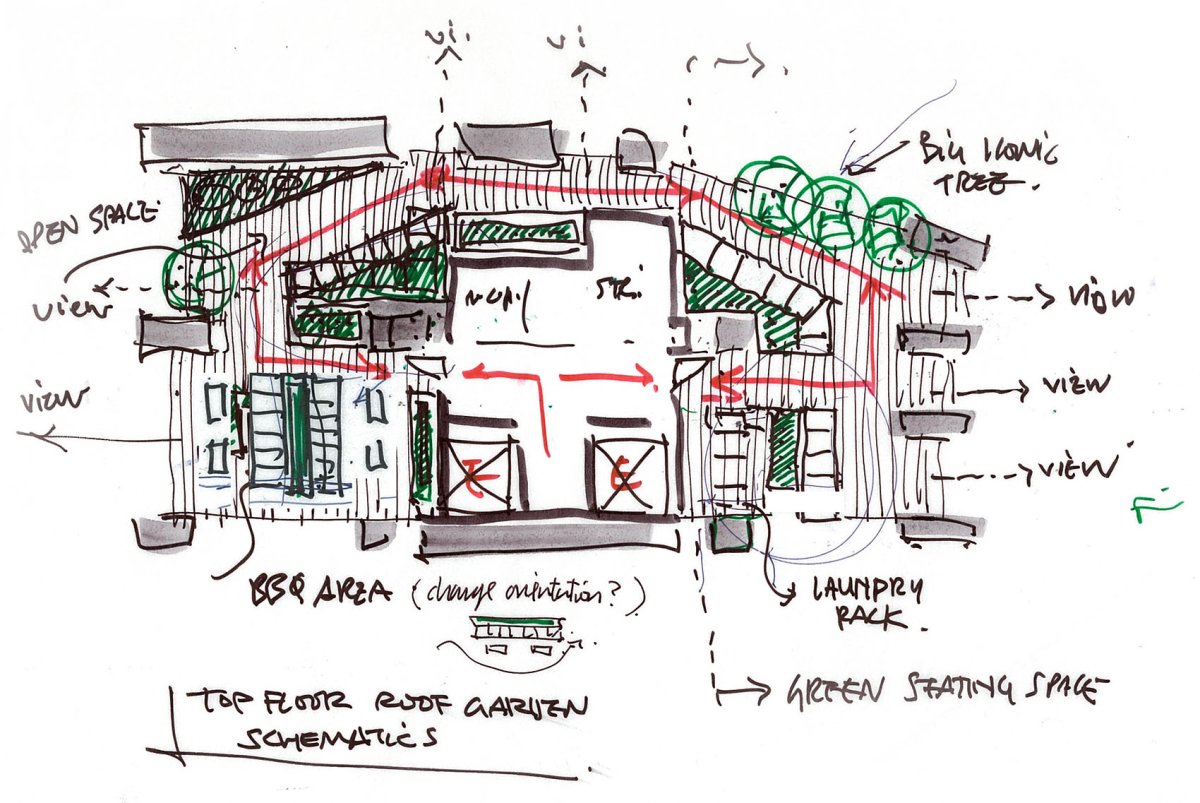 vi.
vi
BIG ICONIC
TREE.
OPEN SPACE
VIEW
VIEW
VIEW
VIEW
VIEW
E
E
BBQ AREA (change orientation?)
LAUNDRY
RACK.
GREEN SEATING SPACE
TOP FLOOR ROOF GARDEN
SCHEMATICS